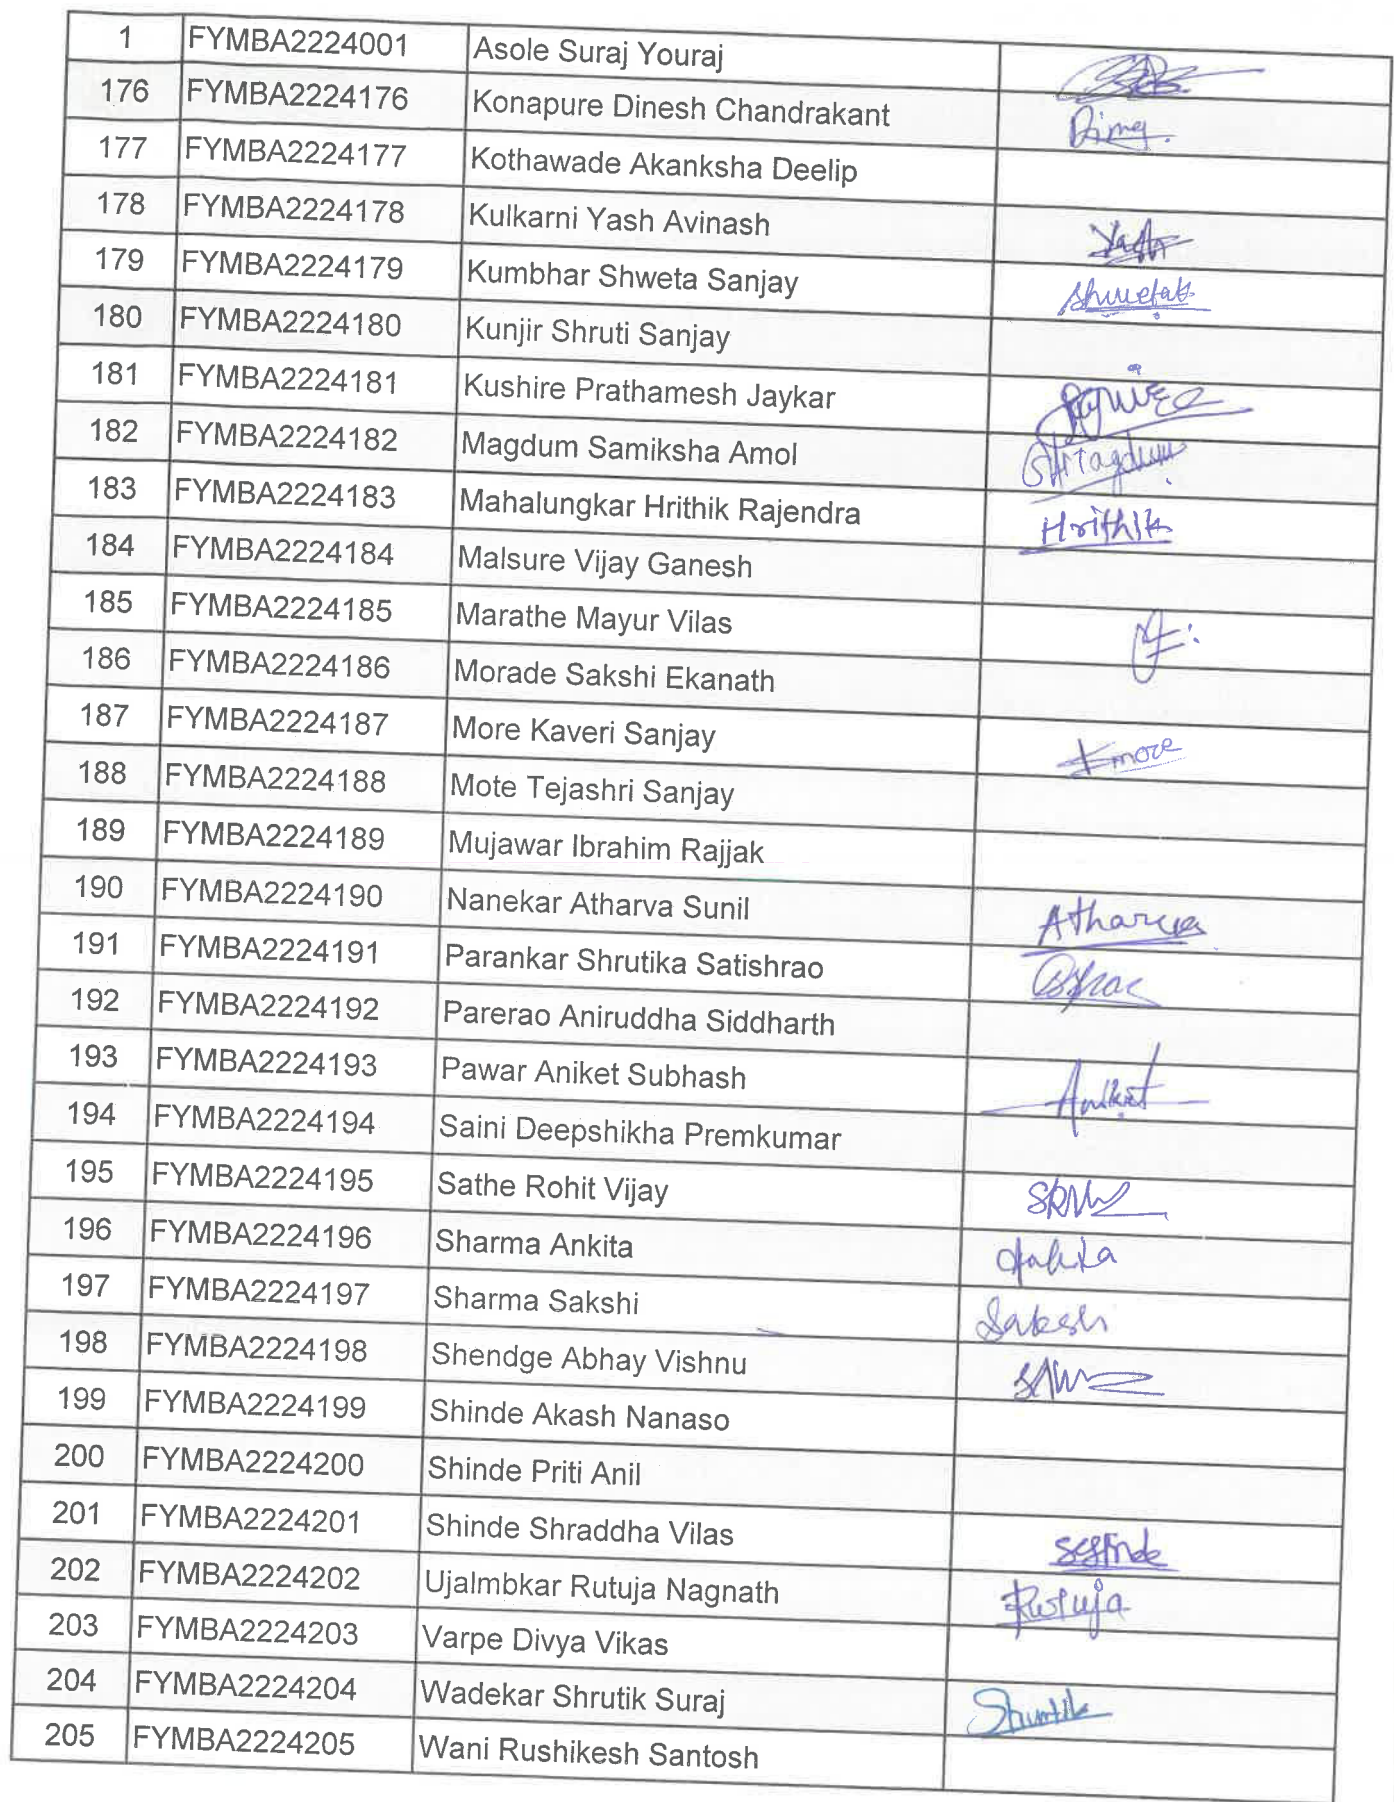 1 FYMBA2224001 Asole Suraj Youraj
176 FYMBA2224176 Konapure Dinesh Chandrakant
177 FYMBA2224177 Kothawade Akanksha Deelip
178 FYMBA2224178 Kulkarni Yash Avinash Yash
179 FYMBA2224179 Kumbhar Shweta Sanjay
180 FYMBA2224180 Kunjir Shruti Sanjay
181 FYMBA2224181 Kushire Prathamesh Jaykar
182 FYMBA2224182 Magdum Samiksha Amol
183 FYMBA2224183 Mahalungkar Hrithik Rajendra Hrithik
184 FYMBA2224184 Malsure Vijay Ganesh
185 FYMBA2224185 Marathe Mayur Vilas
186 FYMBA2224186 Morade Sakshi Ekanath
187 FYMBA2224187 More Kaveri Sanjay Kmore
188 FYMBA2224188 Mote Tejashri Sanjay
189 FYMBA2224189 Mujawar Ibrahim Rajjak
190 FYMBA2224190 Nanekar Atharva Sunil Atharva
191 FYMBA2224191 Parankar Shrutika Satishrao
192 FYMBA2224192 Parerao Aniruddha Siddharth
193 FYMBA2224193 Pawar Aniket Subhash Aniket
194 FYMBA2224194 Saini Deepshikha Premkumar
195 FYMBA2224195 Sathe Rohit Vijay
196 FYMBA2224196 Sharma Ankita Ankita
197 FYMBA2224197 Sharma Sakshi Sakshi
198 FYMBA2224198 Shendge Abhay Vishnu
199 FYMBA2224199 Shinde Akash Nanaso
200 FYMBA2224200 Shinde Priti Anil
201 FYMBA2224201 Shinde Shraddha Vilas
202 FYMBA2224202 Ujalmbkar Rutuja Nagnath Rutuja
203 FYMBA2224203 Varpe Divya Vikas
204 FYMBA2224204 Wadekar Shrutik Suraj Shrutik
205 FYMBA2224205 Wani Rushikesh Santosh